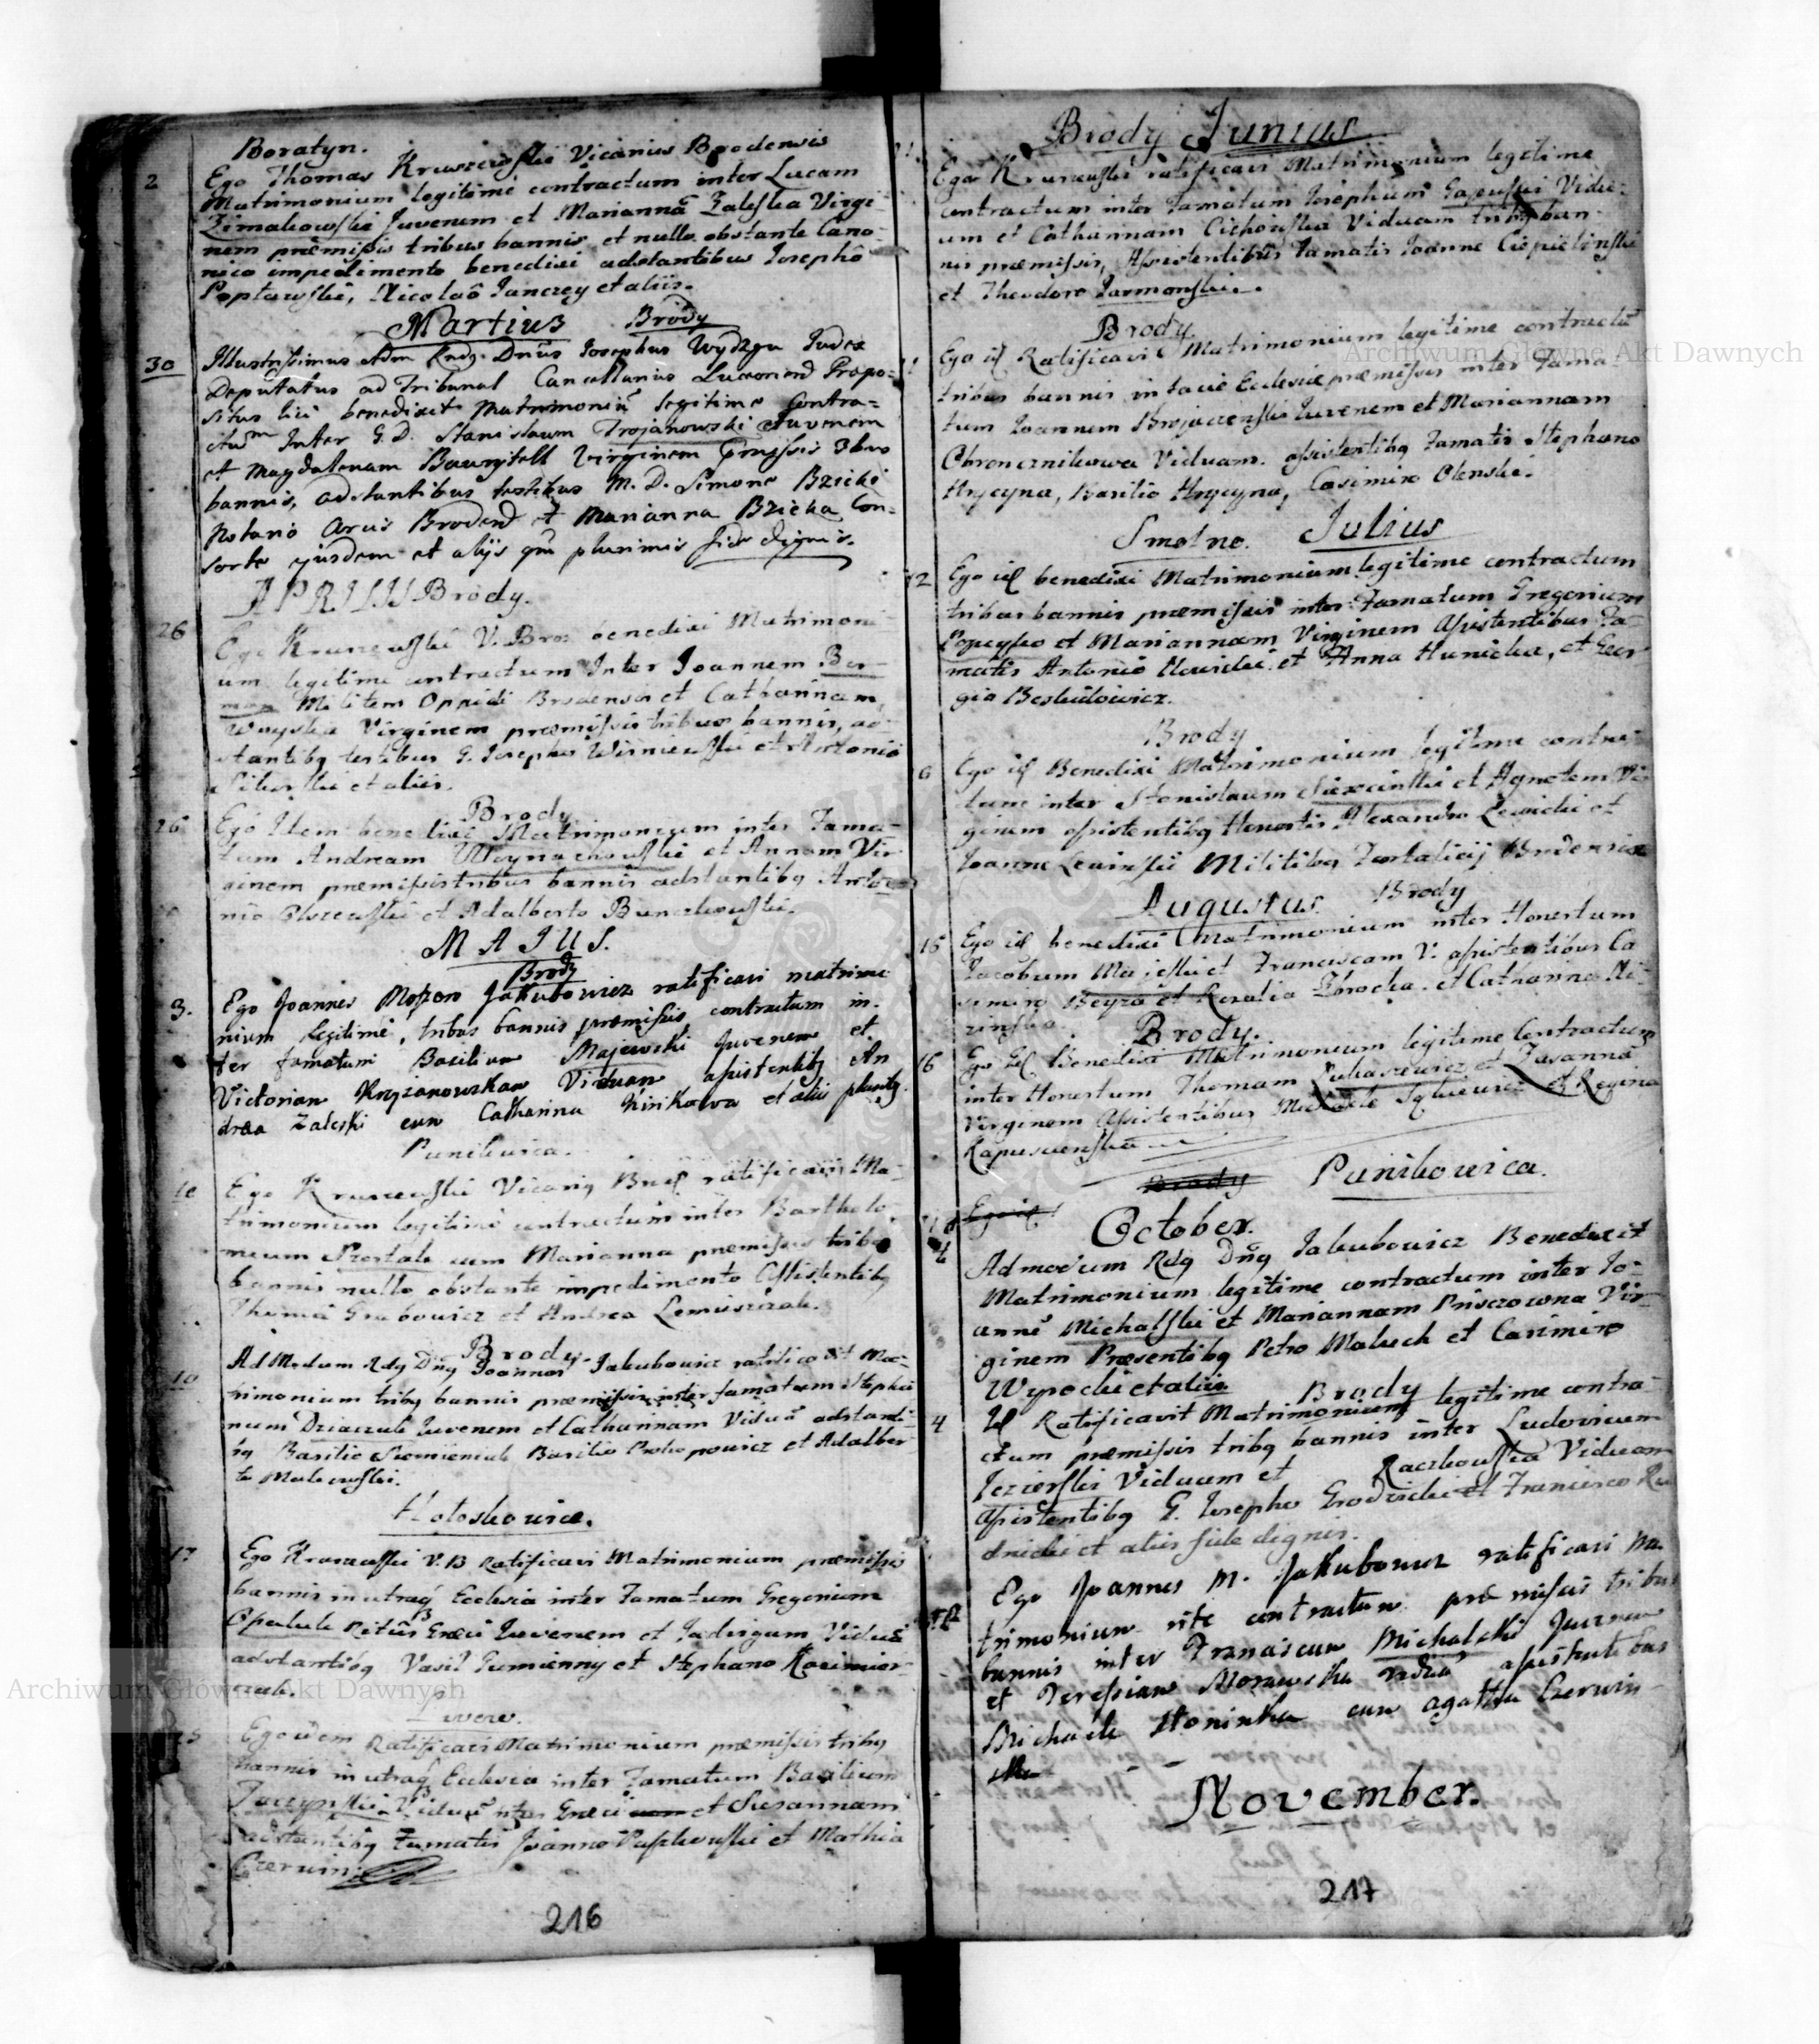 Boratyn.
2 Ego Thomas Kruszewski Vicarius Brodensis
Matrimonium legitime contractum inter Lucam
Zimakowski Juvenem et Mariannã Zaleska Virgi-
nem præmissis tribus bannis et nullo obstante Cano-
nico impedimento benedixi adstantibus Josephô
Poptawski, Nicolaô Janczey et aliis.
Martius Brody
30 Illustrissimus Adm Rndg. Dnus Josephus Wydzga Judex
Deputatus ad Tribunal Cancellarius Luceoriens Præpo-
situs benedixit Matrimoniũ legitime Contra-
ctum Inter G. D. Stanislaum Trojanowski Juvenem
et Magdalenam Virginem præmissis 3bus
bannis, adstantibus testibus M. D. Simone Bzicki
Notario Arcis Brodens et Marianna Bzicka Con-
sorte ejusdem et alijs quã plurimis fide dignis.
APRILIS Brody.
26 Ego Kruszewski V. Bro: benedixi Matrimoni-
um legitime contractum Inter Joannem Ber-
man Militem Oppidi Brodensis et Catharinam
Woyska Virginem præmissis tribus bannis, ad-
stantibq testibus G. Josepho Wisniewski et Antonio
et aliis.
Brody
26 Ego Idem benedixi Matrimonium inter Fama-
tum Andream Woynachowski et Annam Vir-
ginem præmissis tribus bannis adstantibq Anto-
nio Olszewski et Adalberto Bunczkowski.
MAJUS.
Brody
3. Ego Joannes Jakubowicz ratificavi matrimo-
nium legitime, tribus bannis præmissis contractum in-
ter famatum Basilium Majewski Juvenem et
Victoriam Krzyzanowskam Viduam assistentibq An
drea Zaleski cum Catharina Kirikowa et aliis plurib.
Punikowica.
10 Ego Kruszewski Vicariq Brod ratificavi Ma-
trimonium legitime contractum inter Bartholo-
meum Szostak cum Marianna præmissis tribq
bannis nullo obstante impedimento Assistentibq
Thoma Grabowicz et Andrea Lemiszczak.
Brody.
10 Ad Modum Rdq Dnq Joannes Jakubowicz ratificavit Ma-
trimonium tribq bannis præmissis inter famatum Stepha-
num Dziaczuk Juvenem et Catharinam Viduã adstanti-
bq Basilio Siemieniuk Basilio Prokopowicz et Adalber-
to Malewski.
Hotoskowice.
17 Ego Kruszewski V. B Ratificavi Matrimonium præmissis
bannis in utraq Ecclesia inter Famatum Gregorium
Opaluk Ritûs Græci Juvenem et Jadvigam Viduã
adstantibq Vasil Jumienny et Stephano Kazimier-
czak.
25 Ego idem Ratificavi Matrimonium præmissis tribq
bannis in utraq Ecclesia inter Famatum Basilium
Viduũ rtus Græci et Susannam
adstantibq Famatis Joanne Paszkowski et Mathia
Czerwin:
216
Brody Junius
Ego Kruszewski ratificavi Matrimonium legitime
contractum inter Famatum Josephum Gajewski Vidu-
um et Catharinam Cichonska Viduam tribq ban-
nis præmissis, Assistentibus Famatis Joanne
et Theodoro Jarmonski.
Brody.
Ego id Ratificavi Matrimonium legitime contractũ
tribus bannis in facie Ecclesiæ præmissis inter Fama-
tum Joannem Juvenem et Mariannam
Obroncznikowa Viduam. assistentibq Famatis Stephano
Hrycyna, Basilio Hrycyna, Casimiro Olenski.
Smolno. Julius
12 Ego id benedixi Matrimonium legitime contractum
tribus bannis præmissis inter Famatum Gregorium
et Mariannam Virginem Assistentibus Fa-
matis Antonio et Anna Hunicka, et Geor-
gio Beskidowicz.
Brody
6 Ego id Benedixi Matrimonium legitime contra-
ctum inter Stanislaum et Agnetem Vir
ginem assistentibq Honestis Alexandro Lewicki et
Joanne Lewinski Militibq Fortalicij Brodensis
Augustus Brody
15 Ego id benedixi Matrimonium inter Honestum
Jacobum Majeski et Franciscam V. assistentibus Ca
simiro Beyzo et Rosalia Zdrocka. et Catharina
Brody.
16 Ego id Benedixi Matrimonium legitime Contractum
inter Honestum Thomam Lukaszewicz et Zusannã
Virginem Assistentibus Michaele et Regina
Kapuscenska
Brody Punikowica.
Ego id
October.
4 Admodum Rdq Dnq Jakubowicz Benedixit
Matrimonium legitime contractum inter Jo-
annẽ Michalski et Mariannam Priszowna Vir-
ginem Præsentibq Petro Maluch et Casimiro
Wysocki et aliis. Brody
4 Id Ratificavit Matrimonium legitime contra-
ctum præmissis tribq bannis inter Ludovicum
Jezierski Viduum et Raczkowska Viduam
assistentibq G. Josepho Grodzicki et Francisco Ru
dnicki et aliis fide dignis.
Ego Joannes M. Jakubowicz ratificavi Ma-
trimonium rite contractum præmissis tribus
bannis inter Franciscum Michalski Juvenem
et Teressiam Morawska viduã assistentibus
Michaele Honinka cum Agatha Czerwin-
ska
November.
217
Archiwum Główne Akt Dawnych
Archiwum Główne Akt Dawnych